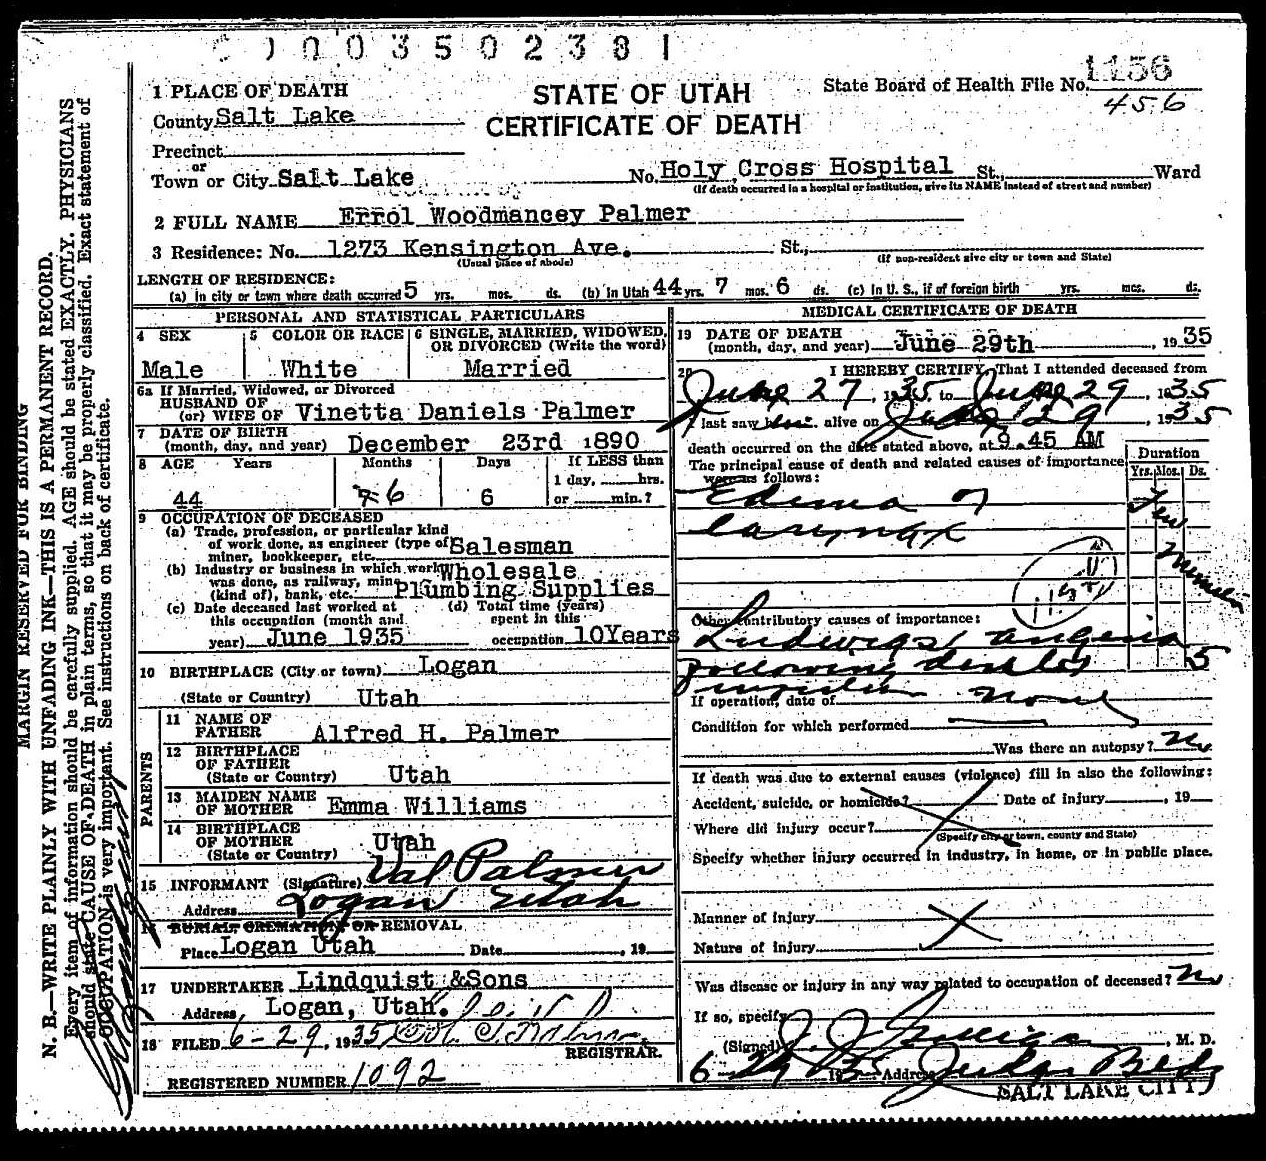 003502381
1 PLACE OF DEATH
STATE OF UTAH
CERTIFICATE OF DEATH
State Board of Health File No. 1156
456
County Salt Lake
Precinct
or
Town or City Salt Lake No. Holy Cross Hospital St., Ward
(If death occurred in a hospital or institution, give its NAME instead of street and number)
2 FULL NAME Errol Woodmancey Palmer
3 Residence: No. 1273 Kensington Ave. St.,
(Usual place of abode) (If non-resident give city or town and State)
LENGTH OF RESIDENCE:
(a) in city or town where death occurred 5 yrs. mos. ds. (b) in Utah 44 yrs. 7 mos. 6 ds. (c) in U. S., if of foreign birth yrs. mos. ds.
PERSONAL AND STATISTICAL PARTICULARS
4 SEX
Male
5 COLOR OR RACE
White
6 SINGLE, MARRIED, WIDOWED,
OR DIVORCED (Write the word)
Married
6a If Married, Widowed, or Divorced
HUSBAND OF
(or) WIFE OF Vinetta Daniels Palmer
7 DATE OF BIRTH
(month, day, and year) December 23rd 1890
8 AGE Years Months Days If LESS than
1 day, hrs.
44 6 6 or min.?
9 OCCUPATION OF DECEASED
(a) Trade, profession, or particular kind
of work done, as engineer (type of Salesman
miner, bookkeeper, etc.
(b) Industry or business in which work Wholesale
was done, as railway, mine
(kind of), bank, etc. Plumbing Supplies
(c) Date deceased last worked at
this occupation (month and
year) June 1935
(d) Total time (years)
spent in this
occupation 10Years
10 BIRTHPLACE (City or town) Logan
(State or Country) Utah
PARENTS
11 NAME OF
FATHER Alfred H. Palmer
12 BIRTHPLACE
OF FATHER
(State or Country) Utah
13 MAIDEN NAME
OF MOTHER Emma Williams
14 BIRTHPLACE
OF MOTHER Utah
(State or Country)
15 INFORMANT (Signature) Val Palmer
Address Logan Utah
16 BURIAL, CREMATION OR REMOVAL
Place Logan Utah Date , 19
17 UNDERTAKER Lindquist &Sons
Address Logan, Utah.
18 FILED 6-29, 1935
REGISTRAR.
REGISTERED NUMBER 1092
MEDICAL CERTIFICATE OF DEATH
19 DATE OF DEATH
(month, day, and year) June 29th , 1935
20 I HEREBY CERTIFY, That I attended deceased from
June 27, 1935 to June 29, 1935
I last saw him alive on June 29, 1935
death occurred on the date stated above, at 9.45 AM
The principal cause of death and related causes of importance
were as follows:
Duration
Yrs. Mos. Ds.
Edema of
larynx
Few
minutes
Other contributory causes of importance:
Ludwigs angina
following dental 5
If operation, date of none
Condition for which performed
Was there an autopsy? No
If death was due to external causes (violence) fill in also the following:
Accident, suicide, or homicide? Date of injury , 19
Where did injury occur?
(Specify city or town, county and State)
Specify whether injury occurred in industry, in home, or in public place.
Manner of injury
Nature of injury
Was disease or injury in any way related to occupation of deceased? No
If so, specify
(Signed) , M. D.
6-29 1935 Address Judge Bldg
SALT LAKE CITY
MARGIN RESERVED FOR BINDING
N. B.—WRITE PLAINLY WITH UNFADING INK—THIS IS A PERMANENT RECORD.
Every item of information should be carefully supplied. AGE should be stated EXACTLY. PHYSICIANS
should state CAUSE OF DEATH in plain terms, so that it may be properly classified. Exact statement of
OCCUPATION is very important. See instructions on back of certificate.